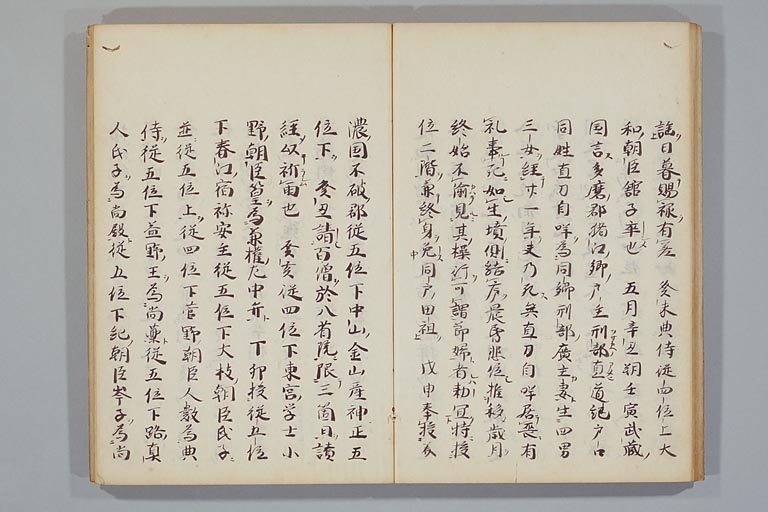 謡日暮賜禄有差 癸未典侍従四位上大
和朝臣舘子卒也 五月辛丑朔壬寅武蔵
国言多磨郡猪江郷戸主刑部直道継戸口
同姓直刀自咩為同郷刑部廣主妻生四男
三女経廿一年夫乃死矣直刀自咩居喪有
礼事死如生墳側結廬晨昏悲泣推移歳月
終始不渝見其操行可謂節婦者勅宜特授
位二階兼終身免同戸田租 戊申奉授美
濃国不破郡従五位下中山金山彦神正五
位下 癸丑請百僧於八省院限三箇日読
経以祈雨也 癸亥従四位下東宮学士小
野朝臣篁為兼権左中弁 丁卯授従五位
下春江宿祢安主従五位下大枝朝臣氏子
並従五位上従四位下菅野朝臣人数為典
侍従五位下益野王為尚薬従五位下路真
人氏子為尚殿従五位下紀朝臣岑子為尚